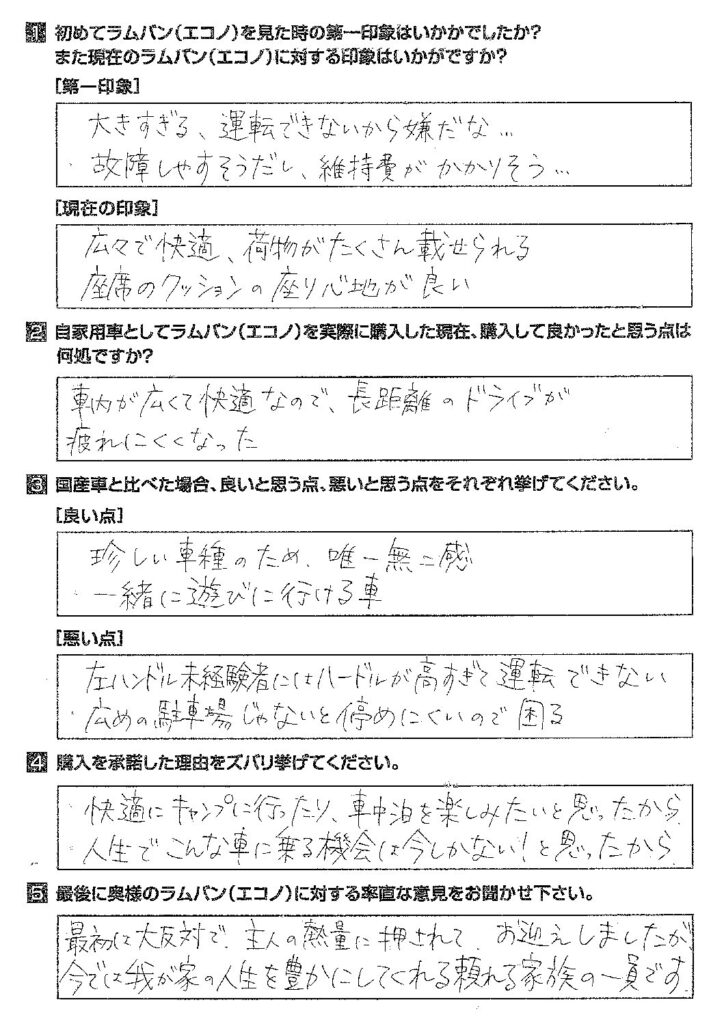 1 初めてラムバン(エコノ)を見た時の第一印象はいかかでしたか?
また現在のラムバン(エコノ)に対する印象はいかがですか?
[第一印象]
大きすぎる、運転できないから嫌だな…
・故障しやすそうだし、維持費がかかりそう…
[現在の印象]
広々で快適、荷物がたくさん載せられる
座席のクッションの座り心地が良い
2 自家用車としてラムバン(エコノ)を実際に購入した現在、購入して良かったと思う点は
何処ですか?
車内が広くて快適なので、長距離のドライブが
疲れにくくなった
3 国産車と比べた場合、良いと思う点、悪いと思う点をそれぞれ挙げてください。
[良い点]
珍しい車種のため、唯一無二感
・一緒に遊びに行ける車
[悪い点]
左ハンドル未経験者にはハードルが高すぎて運転できない
・広めの駐車場じゃないと停めにくいので困る
4 購入を承諾した理由をズバリ挙げてください。
・快適にキャンプに行ったり、車中泊を楽しみたいと思ったから
・人生でこんな車に乗る機会は今しかない!と思ったから
5 最後に奥様のラムバン(エコノ)に対する率直な意見をお聞かせ下さい。
最初は大反対で、主人の熱量に押されて、お迎えしましたが、
今では我が家の人生を豊かにしてくれる頼れる家族の一員です